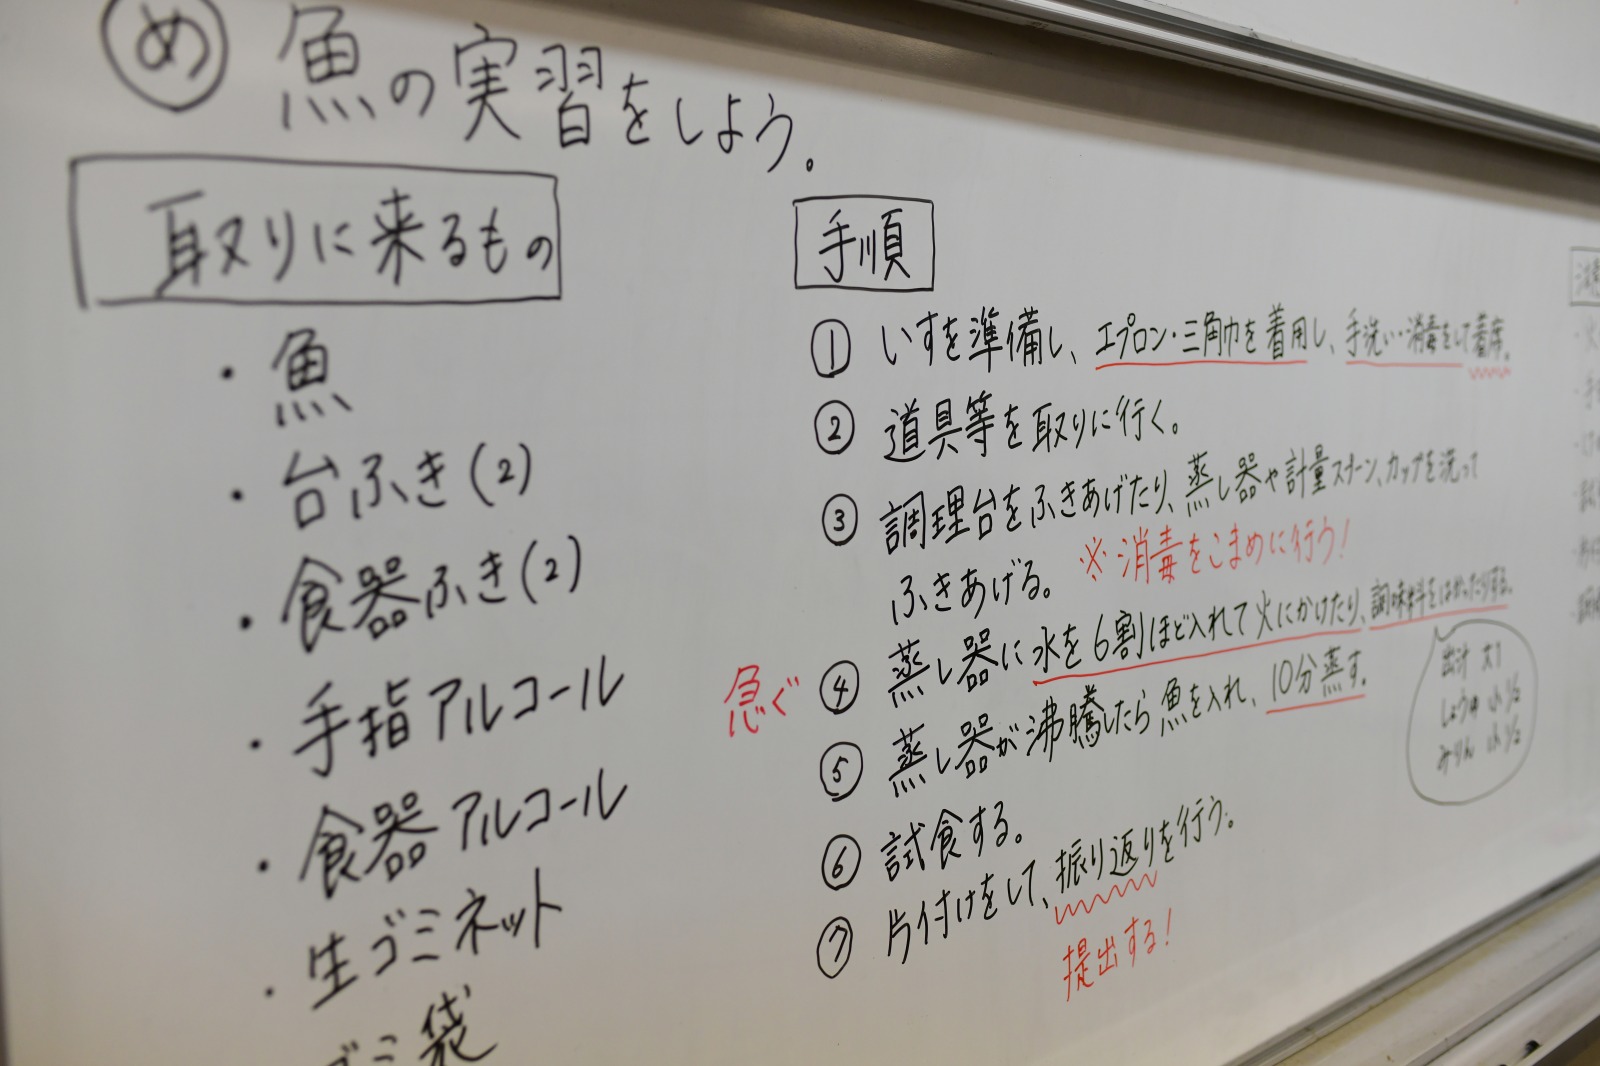 め 魚の実習をしよう。
取りに来るもの
・魚
・台ふき(2)
・食器ふき(2)
・手指アルコール
・食器アルコール
・生ゴミネット
ゴミ袋
手順
① いすを準備し、エプロン・三角巾を着用し、手洗い・消毒をして着席。
② 道具等を取りに行く。
③ 調理台をふきあげたり、蒸し器や計量スプーン、カップを洗って
ふきあげる。 ※消毒をこまめに行う!
急ぐ ④ 蒸し器に水を6割ほど入れて火にかけたり、調味料をはかったりする。
出汁 大1
しょうゆ 小1/2
みりん 小1/2
⑤ 蒸し器が沸騰したら魚を入れ、10分蒸す。
⑥ 試食する。
⑦ 片付けをして、振り返りを行う。
提出する!